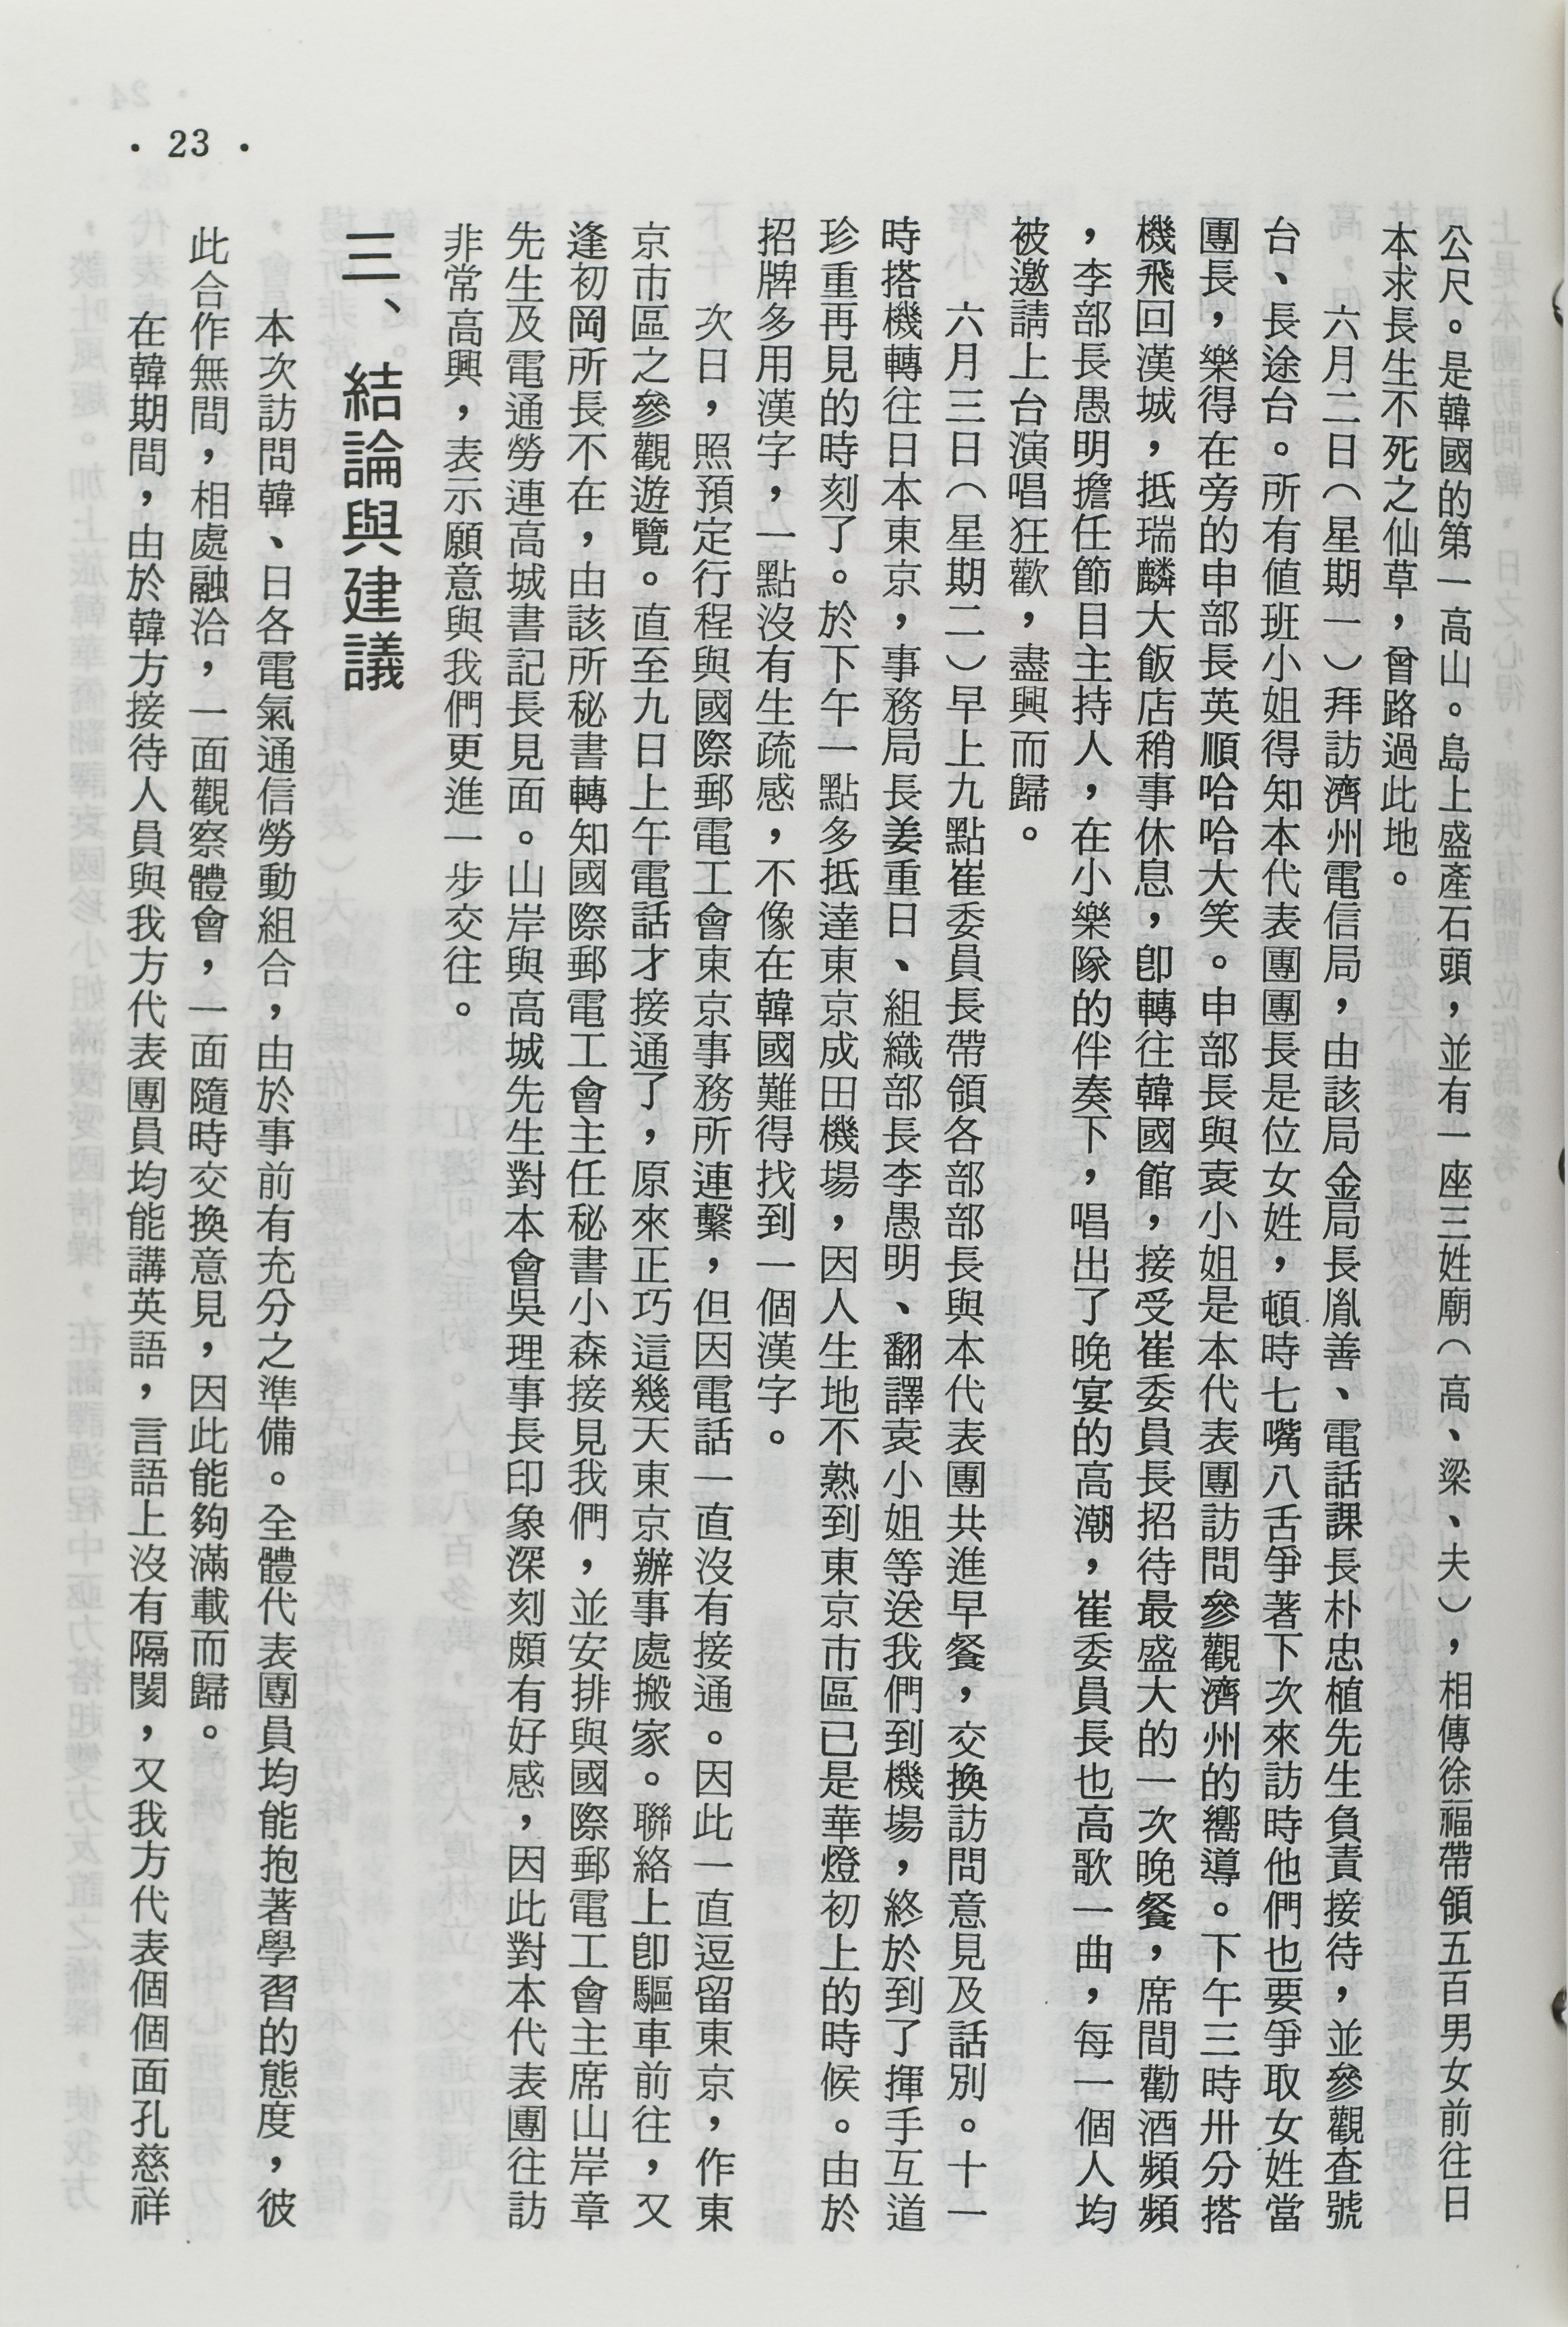 公尺。是韓國的第一高山。島上盛產石頭，並有一座三姓廟（高、梁、夫），相傳徐福帶領五百男女前往日
本求長生不死之仙草，曾路過此地。
六月二日（星期一）拜訪濟州電信局，由該局金局長胤善、電話課長朴忠植先生負責接待，並參觀查號
台、長途台。所有值班小姐得知本代表團團長是位女姓，頓時七嘴八舌爭著下次來訪時他們也要爭取女姓當
團長，樂得在旁的申部長英順哈哈大笑。申部長與袁小姐是本代表團訪問參觀濟州的嚮導。下午三時卅分搭
機飛回漢城，抵瑞麟大飯店稍事休息，卽轉往韓國館，接受崔委員長招待最盛大的一次晚餐，席間勸酒頻頻
，李部長愚明擔任節目主持人，在小樂隊的伴奏下，唱出了晚宴的高潮，崔委員長也高歌一曲，每一個人均
被邀請上台演唱狂歡，盡興而歸。
六月三日（星期二）早上九點崔委員長帶領各部部長與本代表團共進早餐，交換訪問意見及話別。十一
時搭機轉往日本東京，事務局長姜重日、組織部長李愚明、翻譯袁小姐等送我們到機場，終於到了揮手互道
珍重再見的時刻了。於下午一點多抵達東京成田機場，因人生地不熟到東京市區已是華燈初上的時候。由於
招牌多用漢字，一點沒有生疏感，不像在韓國難得找到一個漢字。
次日，照預定行程與國際郵電工會東京事務所連繫，但因電話一直沒有接通。因此一直逗留東京，作東
京市區之參觀遊覽。直至九日上午電話才接通了，原來正巧這幾天東京辦事處搬家。聯絡上卽驅車前往，又
逢初岡所長不在，由該所秘書轉知國際郵電工會主任秘書小森接見我們，並安排與國際郵電工會主席山岸章
先生及電通勞連高城書記長見面。山岸與高城先生對本會吳理事長印象深刻頗有好感，因此對本代表團往訪
非常高興，表示願意與我們更進一步交往。
三、結論與建議
本次訪問韓、日各電氣通信勞動組合，由於事前有充分之準備。全體代表團員均能抱著學習的態度，彼
此合作無間，相處融洽，一面觀察體會，一面隨時交換意見，因此能夠滿載而歸。
在韓期間，由於韓方接待人員與我方代表團員均能講英語，言語上沒有隔閡，又我方代表個個面孔慈祥
• 23 •